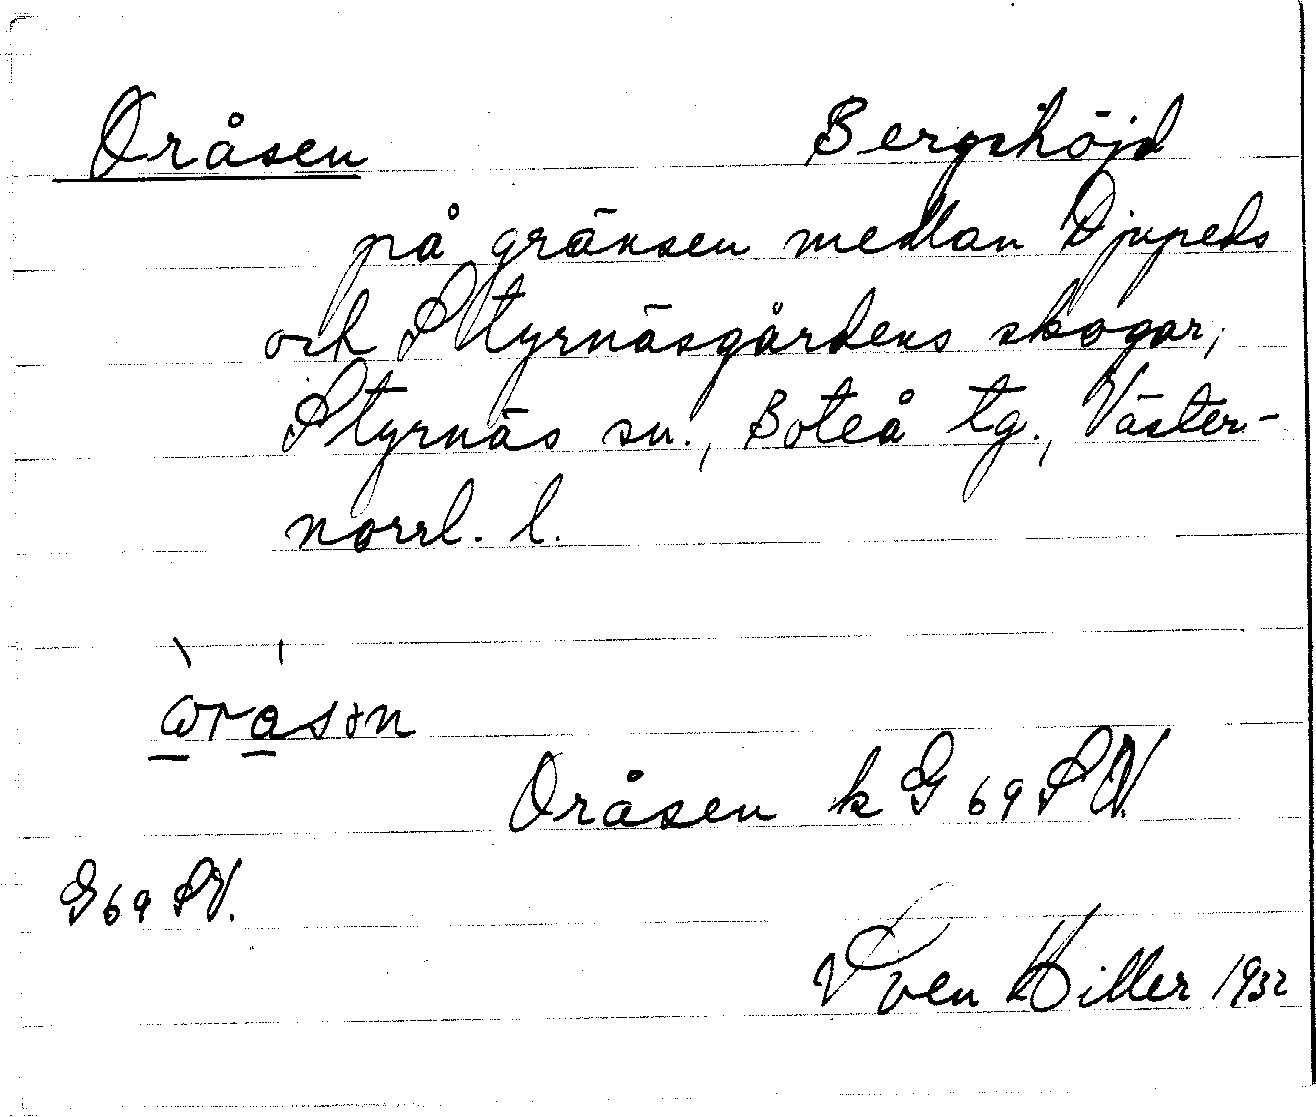 Oråsen Bergshöjd
på gränsen mellan Djupeds
och Styrnäsgårdens skogar,
Styrnäs sn., Boteå tg., Väster-
norrl. l.
Oråsen k G 69 SV.
G 69 SV.
Sven Hiller 1932